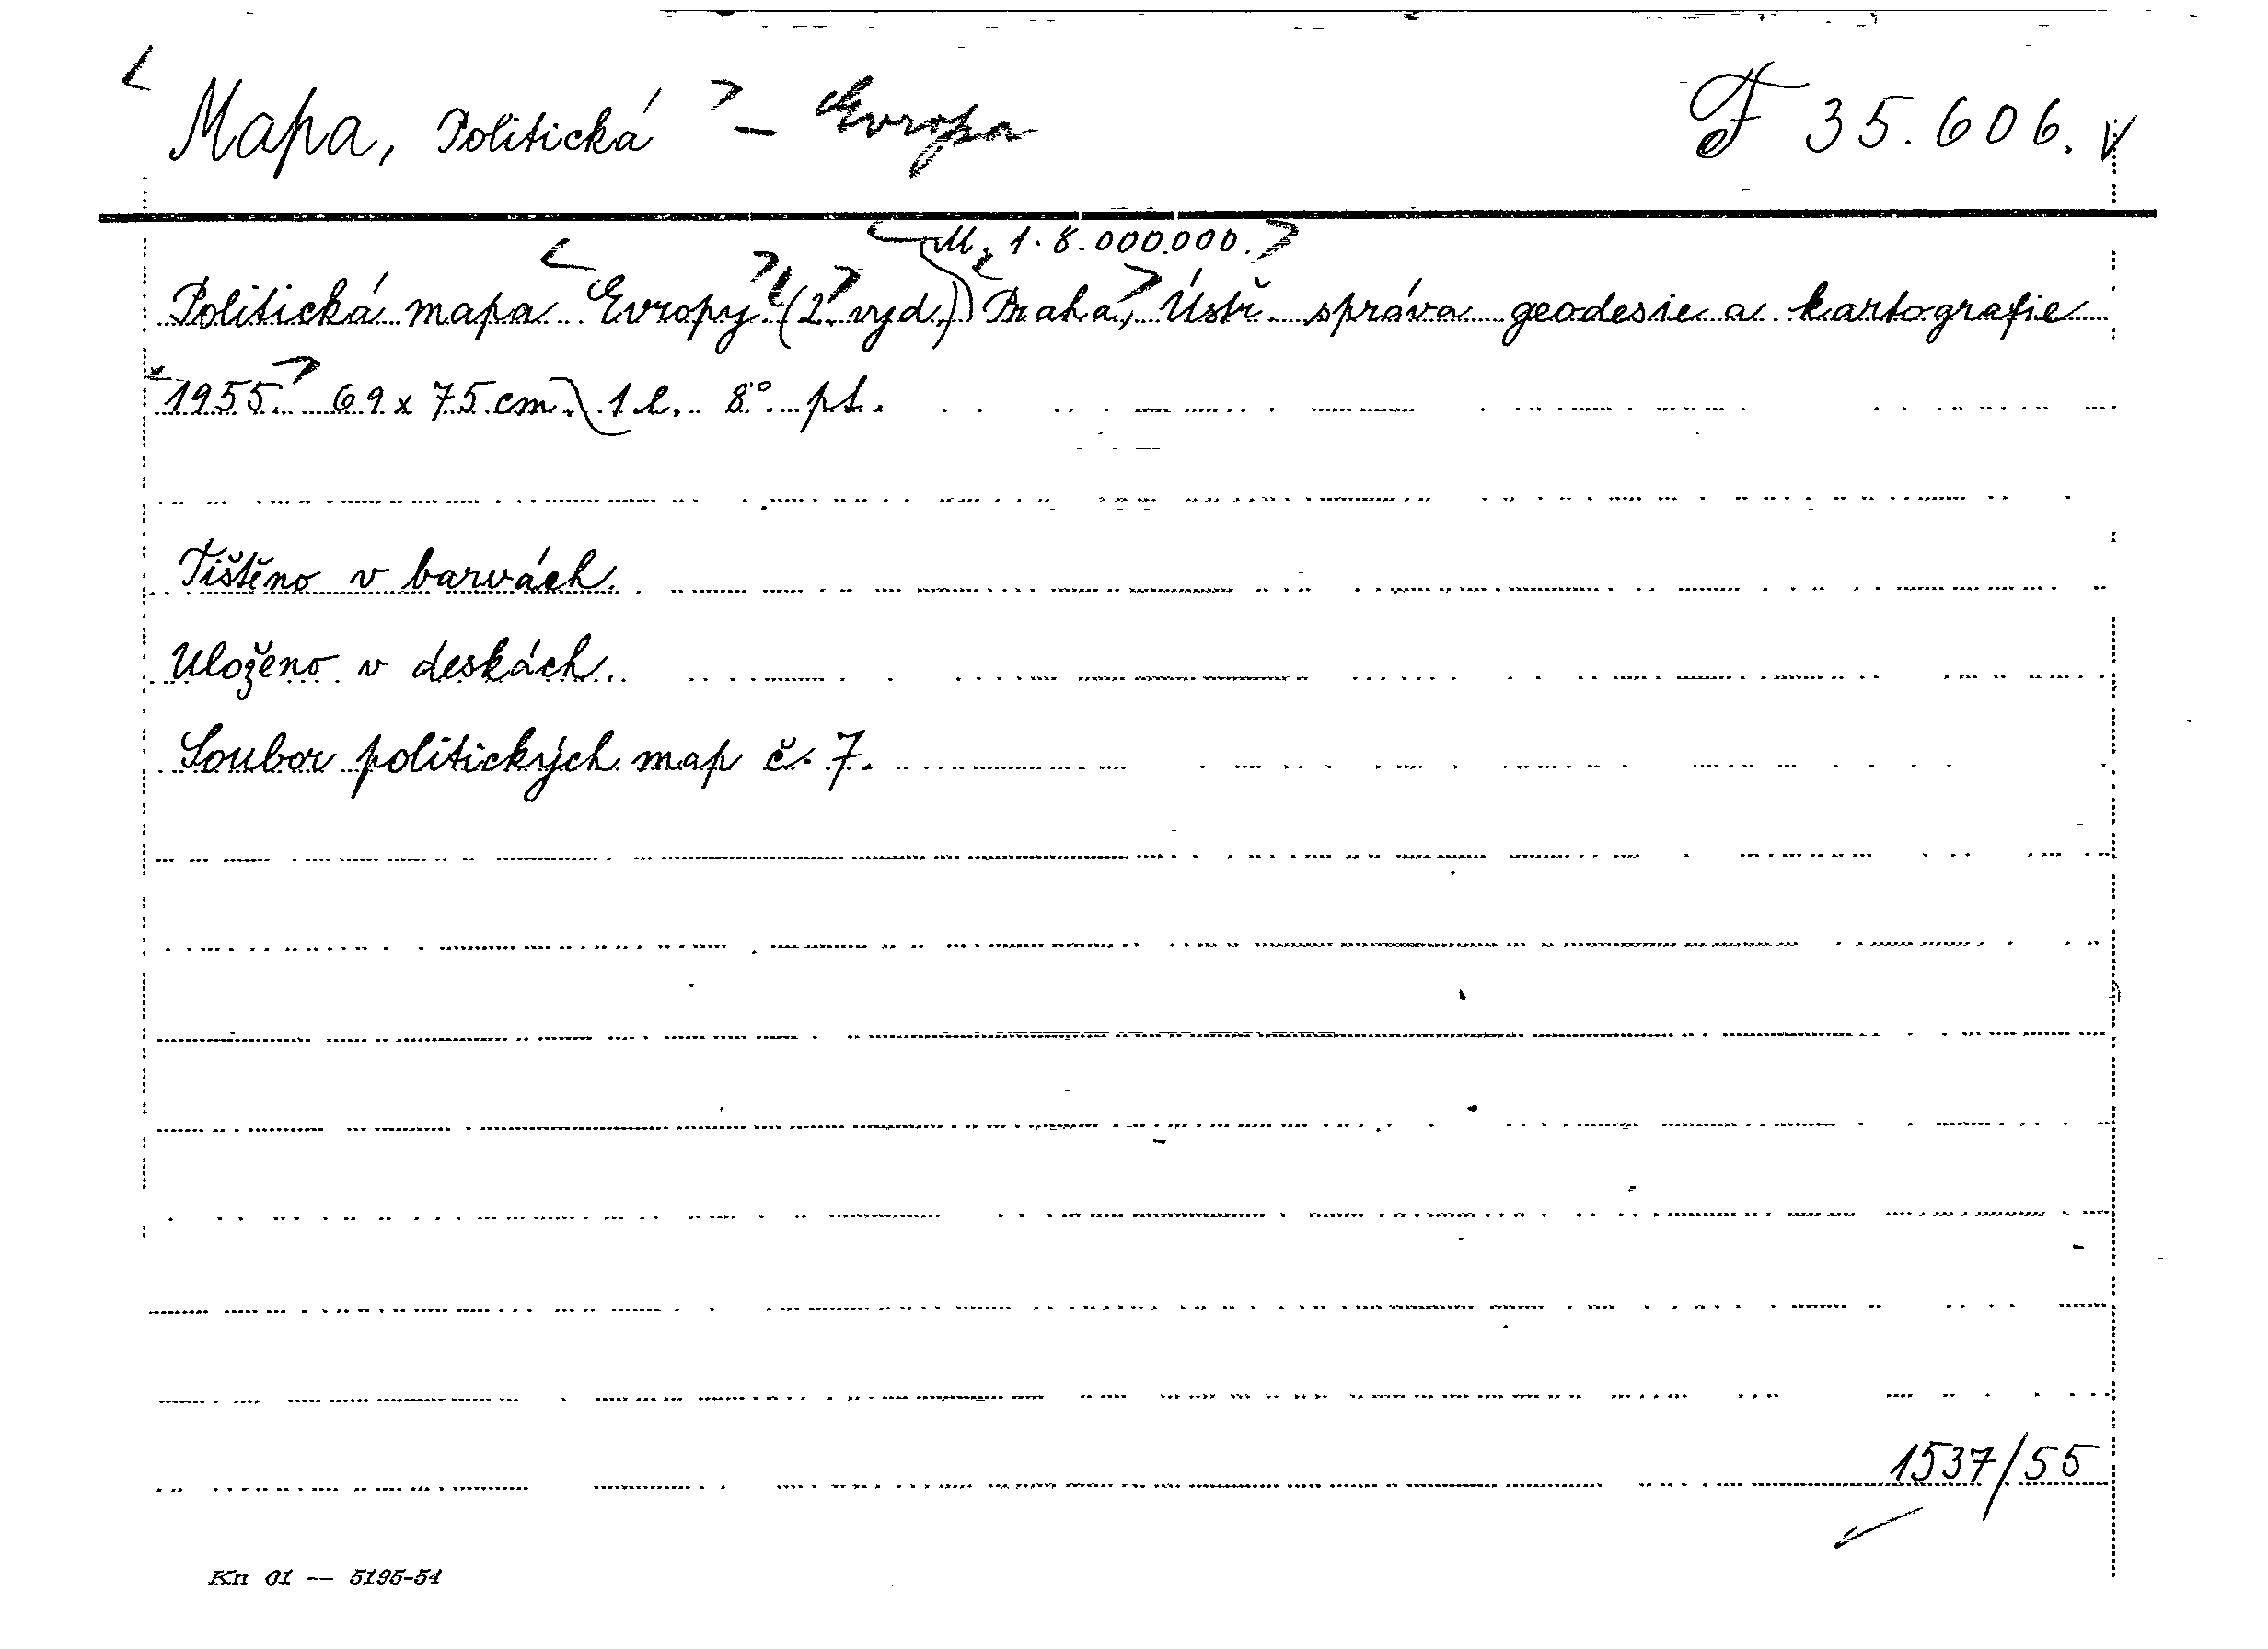 < Mapa, Politická > - Evropa F 35.606. v
< M. 1.8.000.000. >
Politická mapa < Evropy > (2. vyd.) < Praha, > Ústř. správa geodesie a kartografie
< 1955. > 69 x 75 cm. 1 l. 8° pt.
Tištěno v barvách.
Uloženo v deskách.
Soubor politických map č. 7.
1537/55
Kn 01 — 5195-54